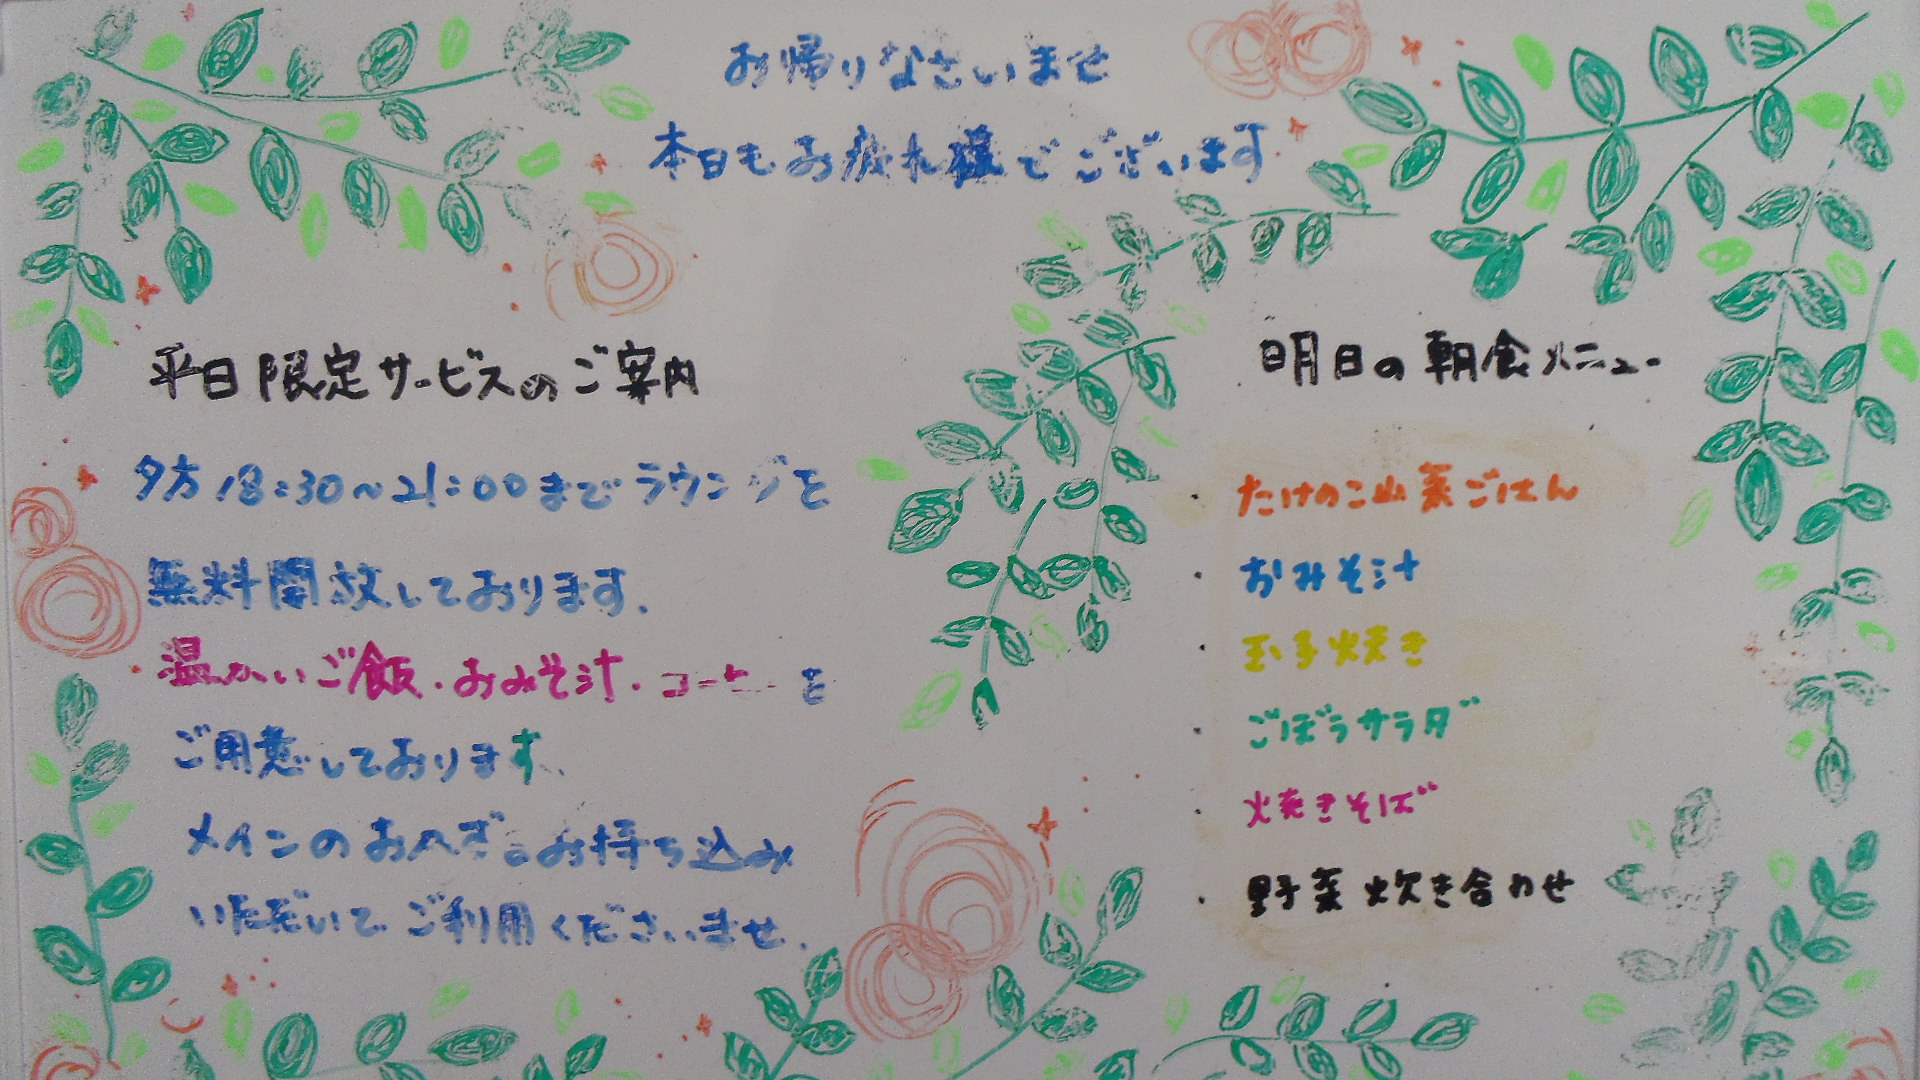 お帰りなさいませ
本日もお疲れ様でございます
平日限定サービスのご案内
夕方18:30〜21:00までラウンジを
無料開放しております。
温かいご飯・おみそ汁・コーヒーを
ご用意しております。
メインのおかずをお持ち込み
いただいてご利用くださいませ。
明日の朝食メニュー
・たけのこ山菜ごはん
・おみそ汁
・玉子焼き
・ごぼうサラダ
・焼きそば
・野菜炊き合わせ